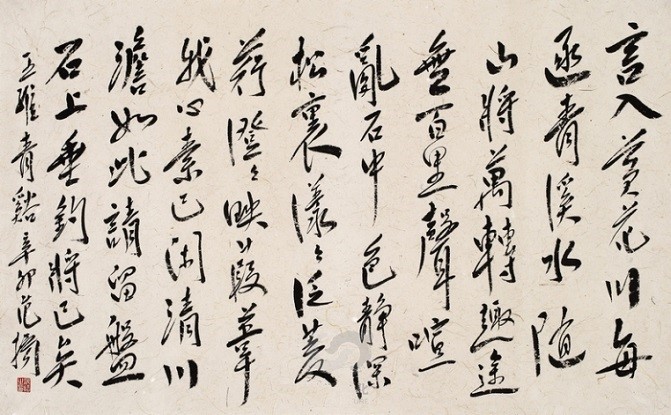 言入黃花川每
逐青溪水随
山將萬轉趣途
無百里聲喧
亂石中色靜深
松裏漾々泛菱
荇澄々映葭葦
我心素已闲清川
澹如此請留盤
石上垂釣將已矣
王維青谿辛卯范